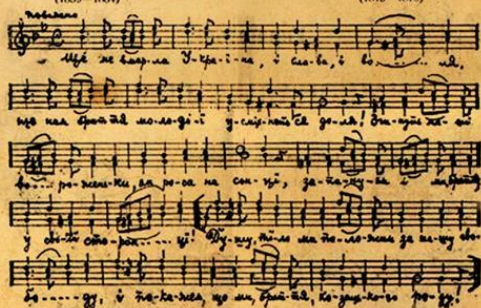 Поважно
Ще не вмер-ла У-кра-ї-на, і сла-ва, і во......ля,
ще нам браття мо-ло-ді-ї у-сміх-неть-ся до-ля! Зги-нуть на-ші
во.... ро-жень-ки, як ро-са на сон-ці, за-па-ну-єм і ми браття
у сво-їй сто-рон......ці! Ду-шу, ті-ло ми по-ло-жим за на-шу сво-
бо......ду, і по-ка-жем, що ми, брат-тя, ко-заць-ко-го ро-ду!